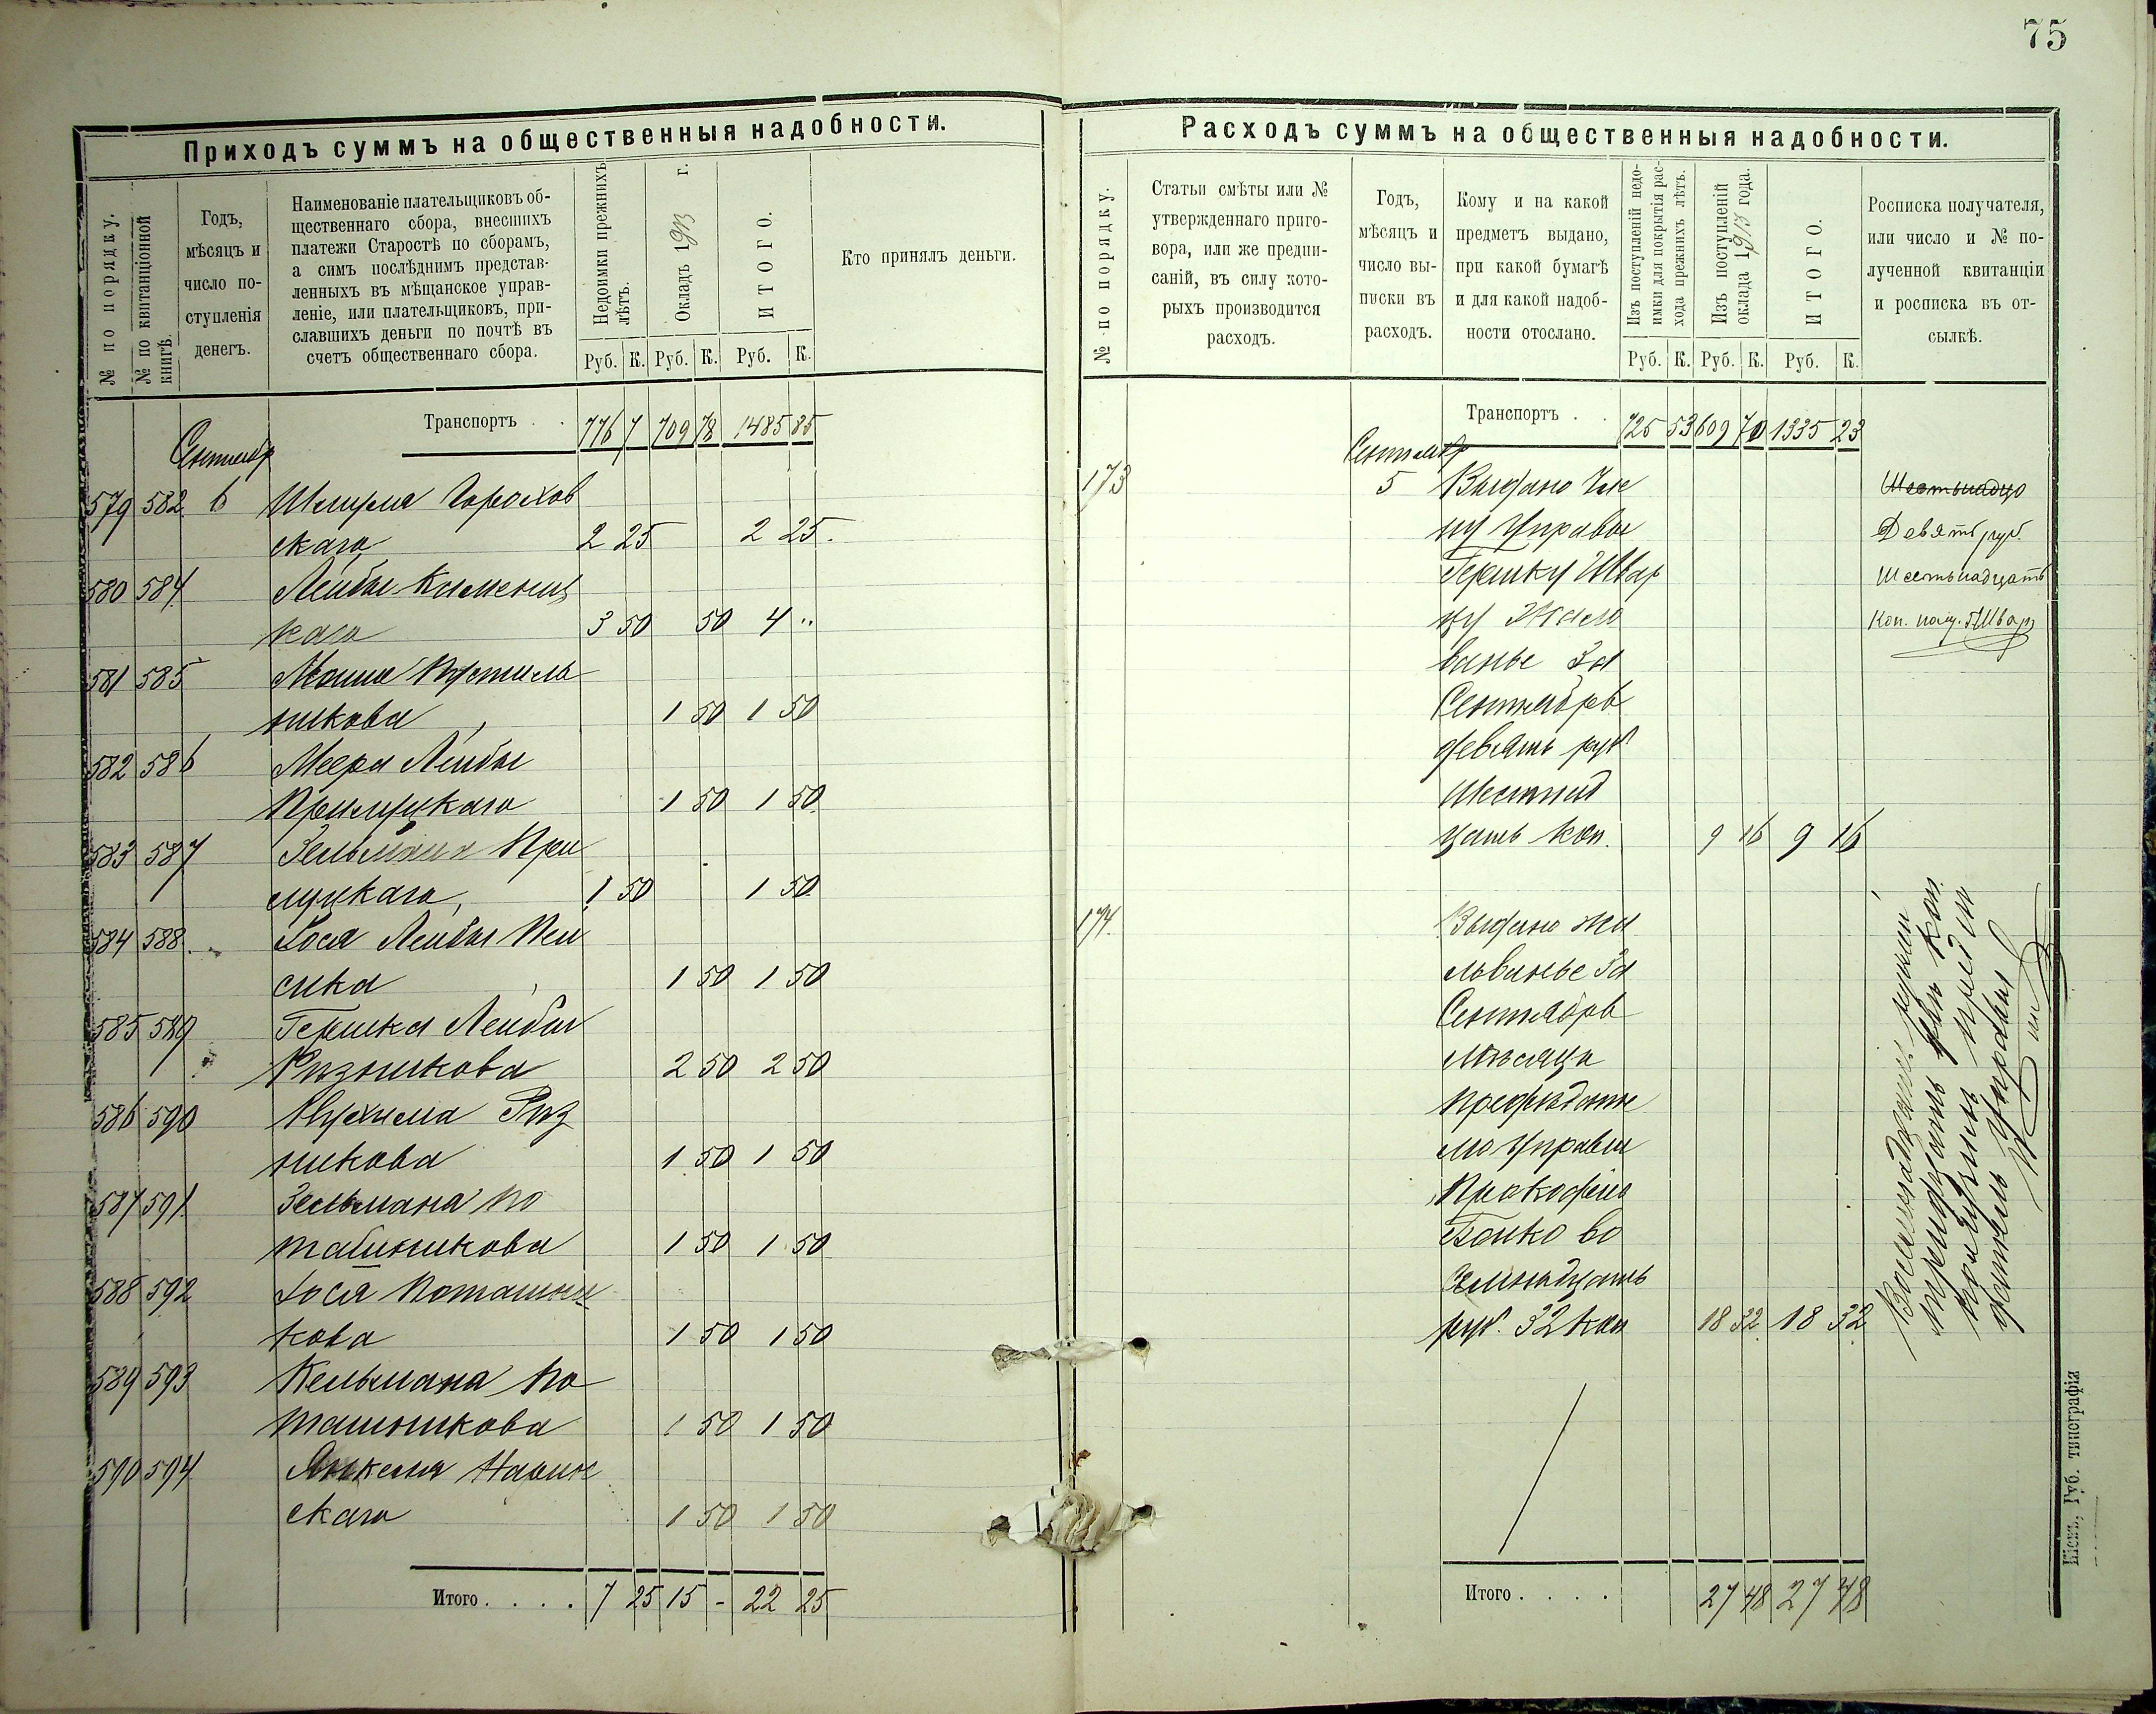 75
Приходъ суммъ на общественныя надобности.
№ по порядку.
№ по квитанціонной книгѣ.
Годъ,
мѣсяцъ и
число по-
ступленія
денегъ.
Наименованіе плательщиковъ об-
щественнаго сбора, внесшихъ
платежи Старостѣ по сборамъ,
а симъ послѣднимъ представ-
ленныхъ въ мѣщанское управ-
леніе, или плательщиковъ, при-
славшихъ деньги по почтѣ въ
счетъ общественнаго сбора.
Недоимки прежнихъ
лѣтъ.
Окладъ 1913 г.
ИТОГО.
Руб. К. Руб. К. Руб. К.
Кто принялъ деньги.
Транспортъ . . 776 7 709 78 1485 85
Сентябр
579 582 6 Шмуля Горохов
скаго 2 25 2 25.
580 584 Лейбы Каменец
каго 3 50 50 4 "
581 585 Мошка Пустиль
никова 1 50 1 50
582 586 Меера Лейбы
Прилуцкаго 1 50 1 50
583 587 Зельмана При
луцкаго, 1 50 1 50
584 588 Іося Лейбы Пей
сика 1 50 1 50
585 589 Гершка Лейбы
Рѣзникова 2 50 2 50
586 590 Нухима Рѣз
никова 1 50 1 50
587 591 Зельмана По
ташникова 1 50 1 50
588 592 Іося Поташни
кова 1 50 1 50
589 593 Кельмана По
ташникова 1 50 1 50
590 594 Янкеля
скаго 1 50 1 50
Итого . . . . 7 25 15 - 22 25
Расходъ суммъ на общественныя надобности.
№ по порядку.
Статьи смѣты или №
утвержденнаго приго-
вора, или же предпи-
саній, въ силу кото-
рыхъ производится
расходъ.
Годъ,
мѣсяцъ и
число вы-
писки въ
расходъ.
Кому и на какой
предметъ выдано,
при какой бумагѣ
и для какой надоб-
ности отослано.
Изъ поступленій недо-
имки для покрытія рас-
хода прежнихъ лѣтъ.
Изъ поступленій
оклада 1913 года.
ИТОГО.
Руб. К. Руб. К. Руб. К.
Росписка получателя,
или число и № по-
лученной квитанціи
и росписка въ от-
сылкѣ.
Транспортъ . . 725 53 609 70 1335 23
Сентябр
173 5 Выдано Чле
ну Управы
Гершку Швар
цу Жало
ванье за
Сентябрь
девять руб
Шестнад
цать коп. 9 16 9 16
Шестьнадцо
Девять руб.
Шестьнадцать
Коп. пол. ГШварц
174. Выдано жа
лованье за
Сентябрь
Мѣсяцъ
Предсѣдате
лю Управы
Прокофію
Бойко во
семнадцать
руб. 32 коп 18 32 18 32
Восемнадцать рублей
тридцать двѣ коп.
получилъ Предсѣ
датель Управы
Итого . . . . 27 48 27 48
Кіевъ, Губ. типографія